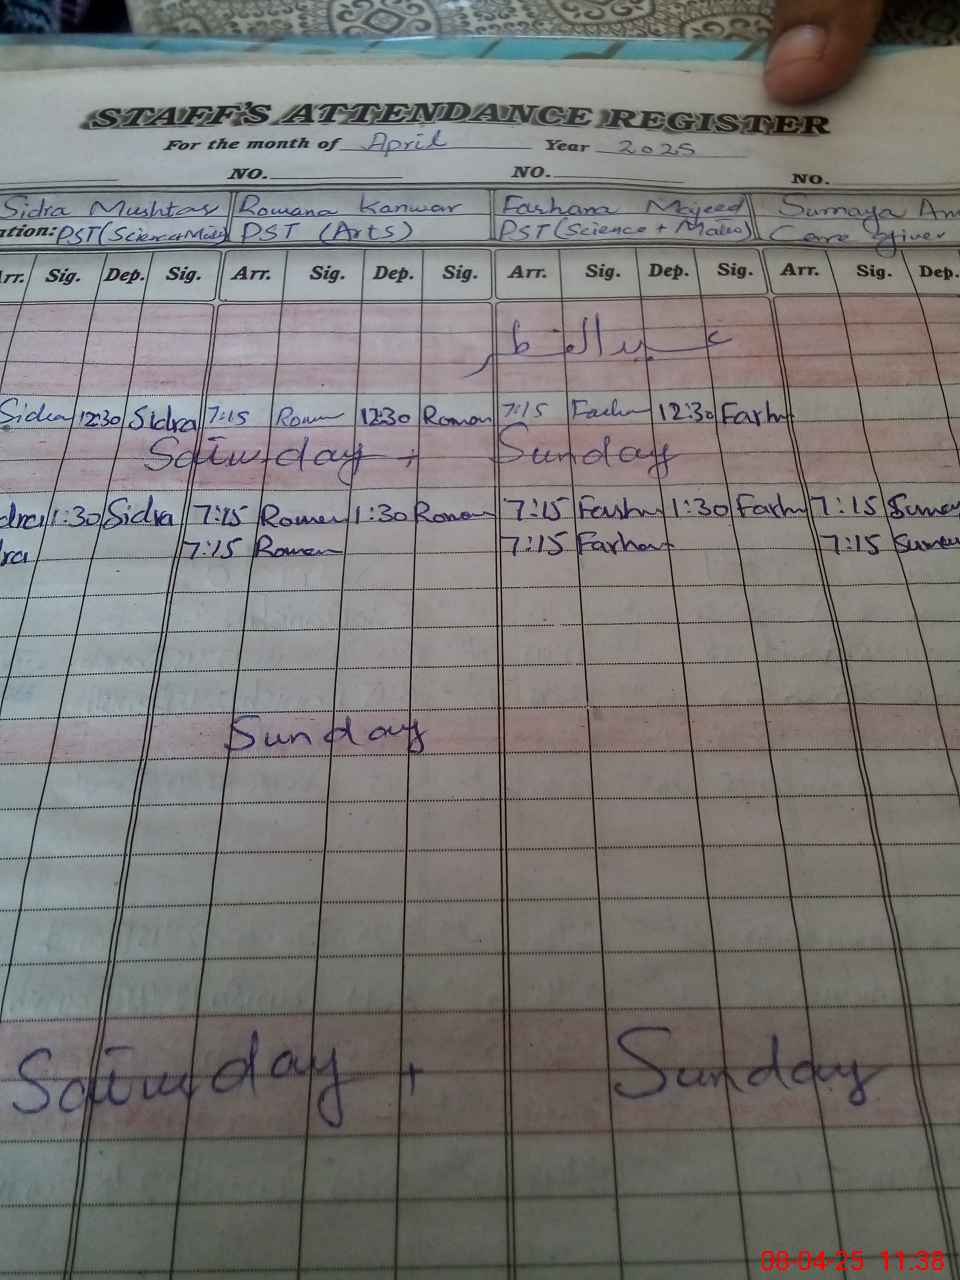 STAFF'S ATTENDANCE REGISTER
For the month of April Year 2025
NO. NO. NO.
Sidra Mushtaq Romana Kanwar Farhana Majeed Sumaya Am
ation: PST (Science+Maths) PST (Arts) PST (Science + Maths) Care giver
Arr. Sig. Dep. Sig. Arr. Sig. Dep. Sig. Arr. Sig. Dep. Sig. Arr. Sig. Dep.
عید الفطر
Sidra 12:30 Sidra 7:15 Roman 12:30 Roman 7:15 Farhn 12:30 Farhn
Saturday + Sunday
dra 1:30 Sidra 7:15 Roman 1:30 Roman 7:15 Farhn 1:30 Farhn 7:15 Sumay
ra 7:15 Roman 7:15 Farhan 7:15 Sumay
Sunday
Saturday + Sunday
08-04-25 11:38